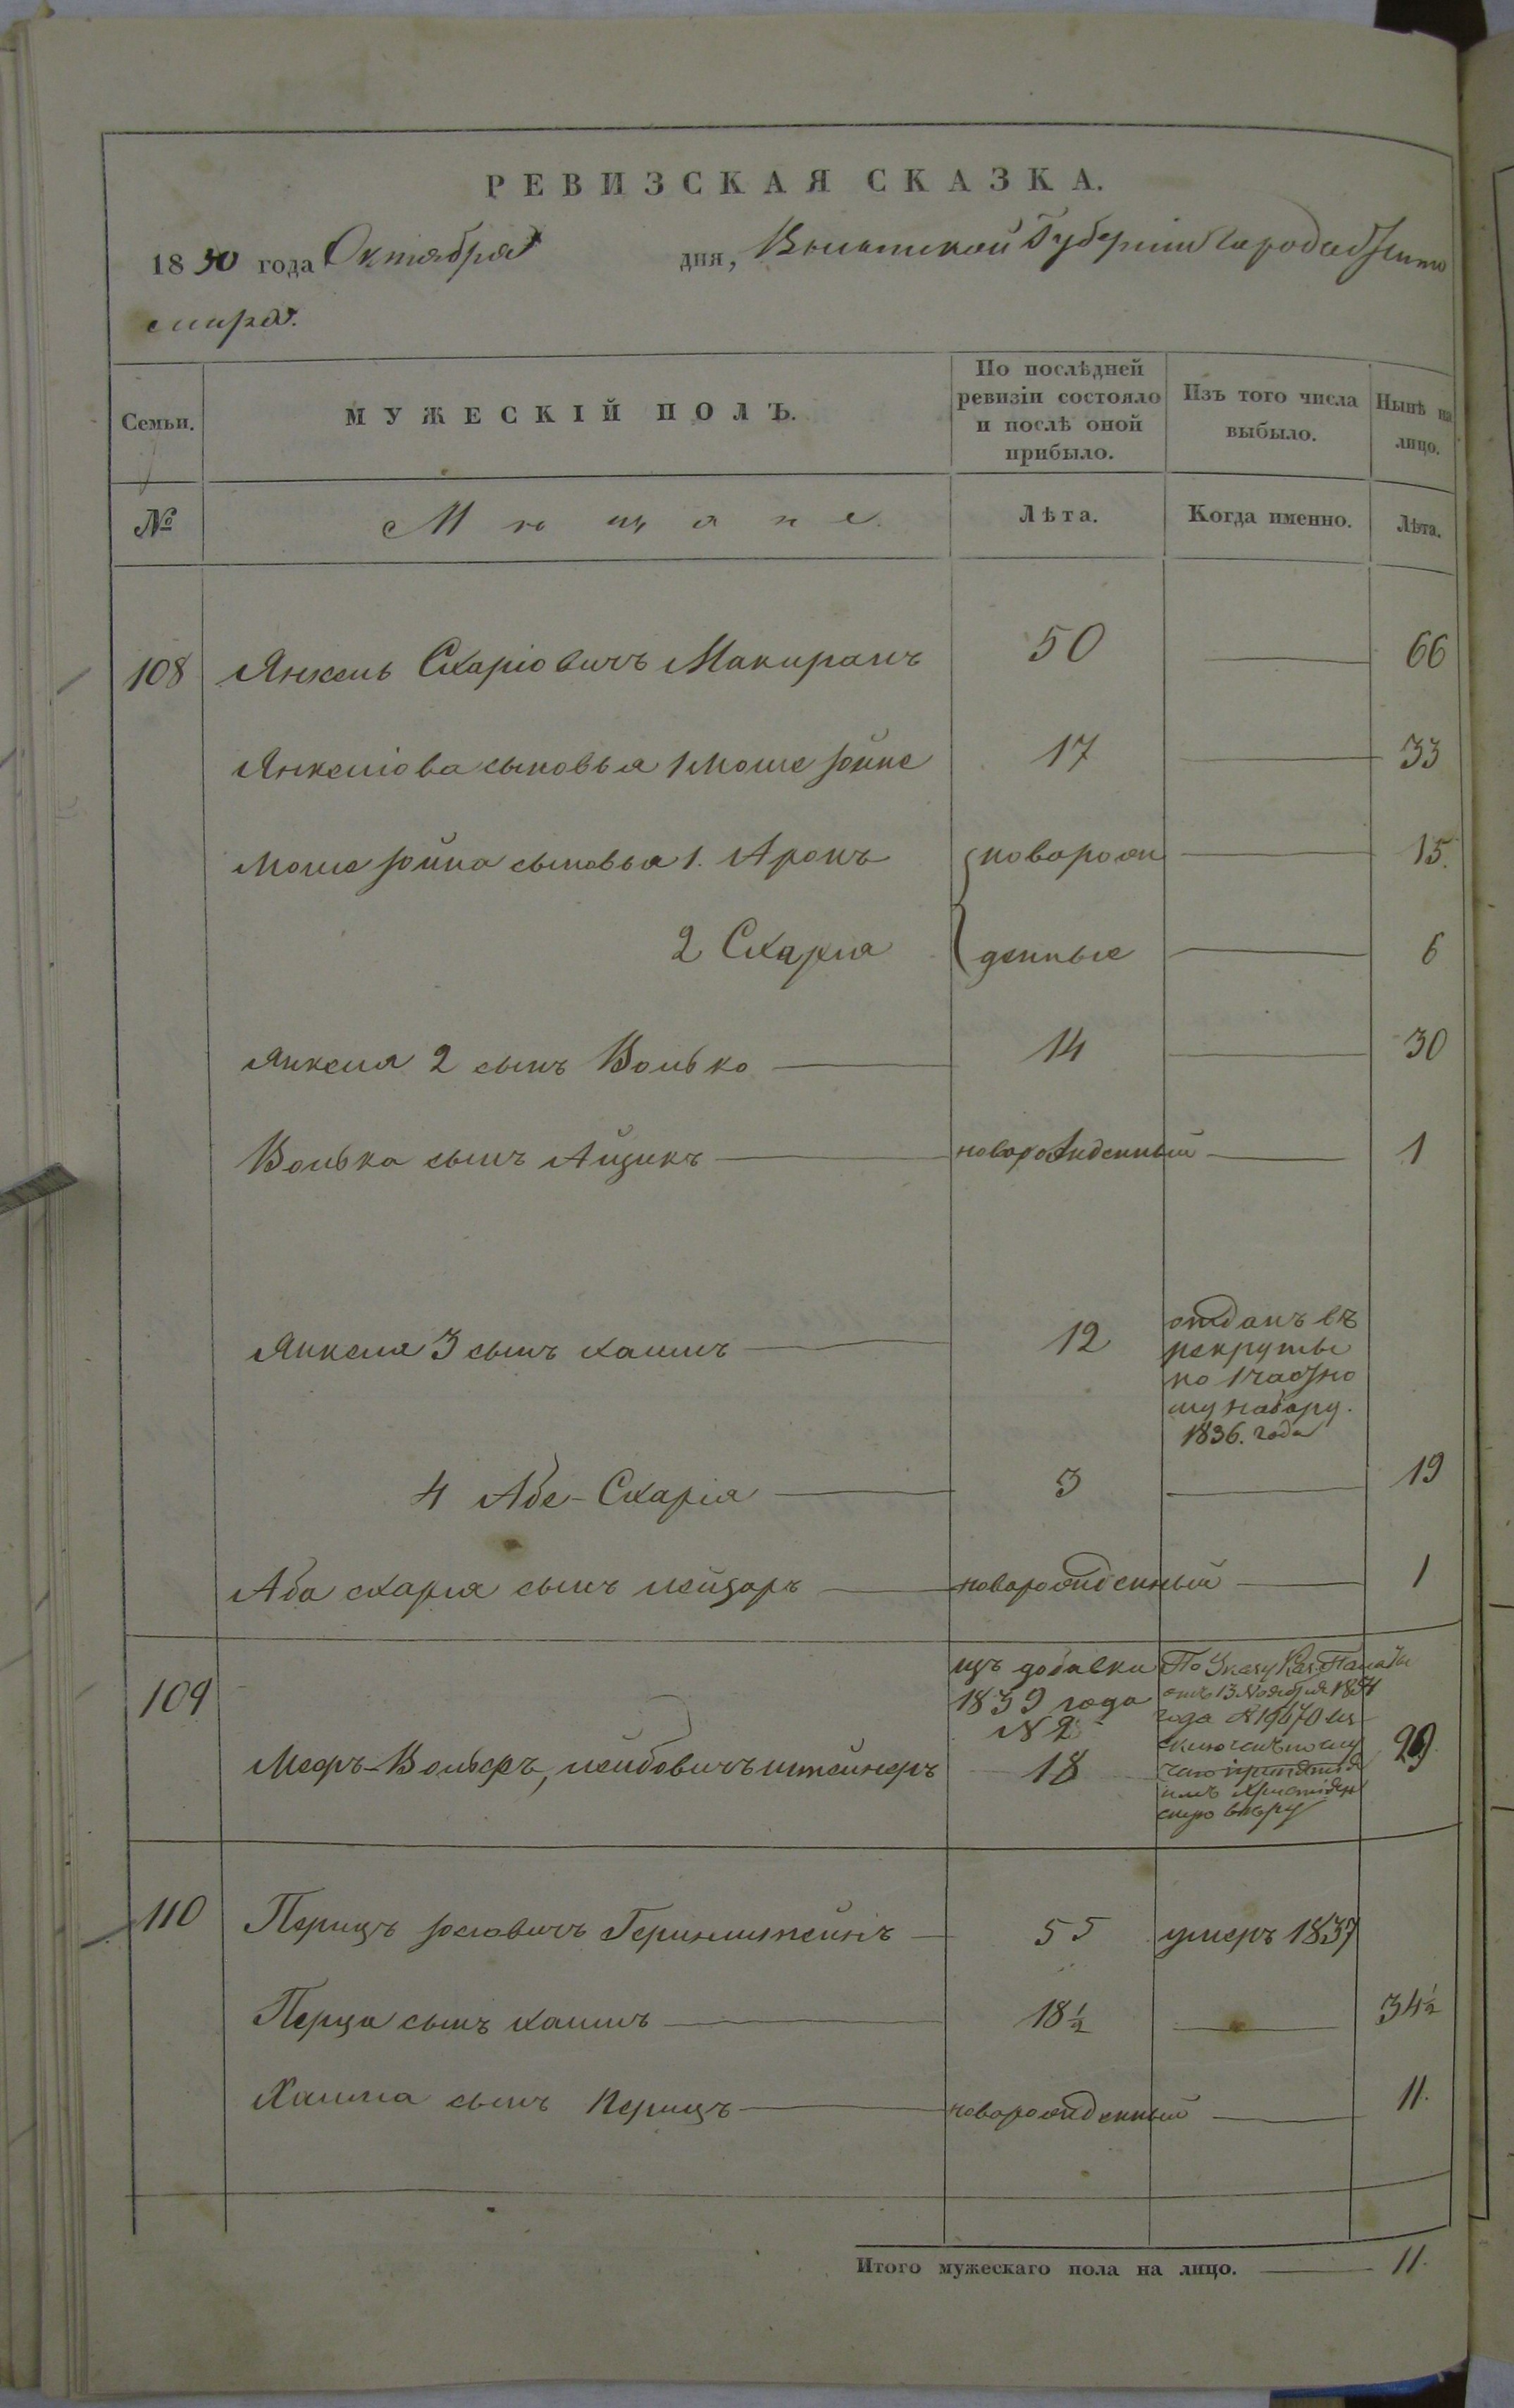 РЕВИЗСКАЯ СКАЗКА.
1850 года Октября дня, Волынской Губерніи Города Жито
мира.
Семьи.
МУЖЕСКІЙ ПОЛЪ.
По послѣдней ревизіи состояло и послѣ оной прибыло.
Изъ того числа выбыло.
Нынѣ на лицо.
№
Мѣщане.
Лѣта.
Когда именно.
Лѣта.
108 Янкель Схаріовичъ Макиранъ 50 66
Янкеліова сыновья 1 Моше Іойне 17 33
Моше Іойна сыновья 1. Аронъ новорож 15.
2 Схарія денные 6
Янкеля 2 сынъ Волько 14 30
Волька сынъ Айзикъ новорожденный 1
Янкеля 3 сынъ Хаимъ 12 отданъ въ
рекруты
по 1 частно
му набору.
1836. года
4 Абе-Схарія 3 19
Аба Схарія сынъ Лейзоръ новорожденный 1
109 изъ добавки По Указу Каз. Палаты
1839 года отъ 13 Ноября 1854
N 2 года N 19670 ис
ключенъ по слу
Мееръ-Вольфъ, Лейбовичъ Штейнеръ 18 29
чаю принятія
имъ Христіян
скую вѣру
110 Перицъ Іосіовичъ Геринштейнъ 55 умеръ 1837
Перца сынъ Хаимъ 18½ 34½
Хаима сынъ Перицъ новорожденный 11.
Итого мужескаго пола на лицо. 11.